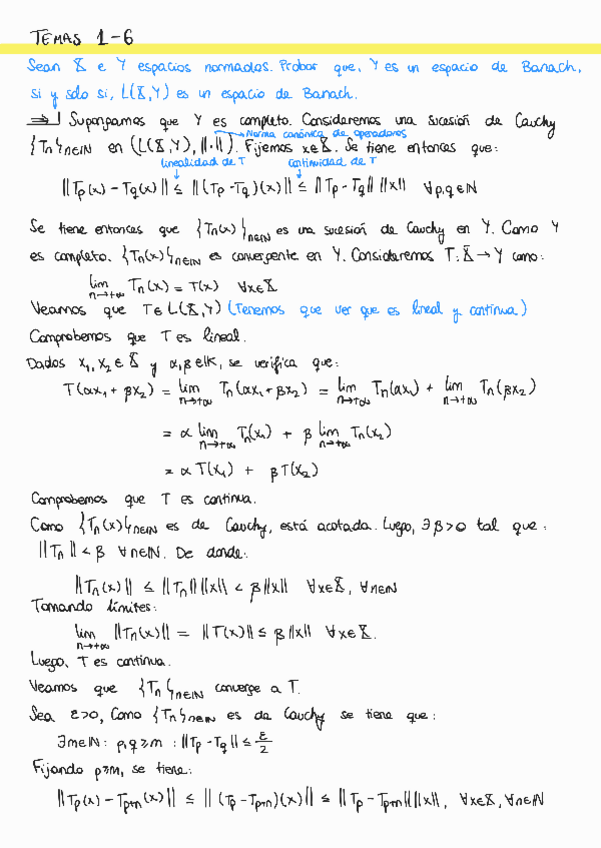 TEMAS 1-6
Sean X e Y espacios normados. Probar que, Y es un espacio de Banach,
si y solo si, L(X,Y) es un espacio de Banach.
⟹| Supongamos que Y es completo. Consideremos una sucesión de Cauchy
{Tn}n∈ℕ en (L(X,Y), ||·||). Fijemos x∈X. Se tiene entonces que:
→ Norma canónica de operadores
linealidad de T continuidad de T
||Tp(x) - Tq(x)|| ≤ ||(Tp - Tq)(x)|| ≤ ||Tp - Tq|| ||x|| ∀p,q∈ℕ
Se tiene entonces que {Tn(x)}n∈ℕ es una sucesión de Cauchy en Y. Como Y
es completo, {Tn(x)}n∈ℕ es convergente en Y. Consideremos T: X → Y como:
lim n→+∞ Tn(x) = T(x) ∀x∈X
Veamos que T∈L(X,Y) (Tenemos que ver que es lineal y continua)
Comprobemos que T es lineal.
Dados x₁, x₂ ∈ X y α,β∈K, se verifica que:
T(αx₁ + βx₂) = lim n→+∞ Tn(αx₁ + βx₂) = lim n→+∞ Tn(αx₁) + lim n→+∞ Tn(βx₂)
= α lim n→+∞ Tn(x₁) + β lim n→+∞ Tn(x₂)
= α T(x₁) + β T(x₂)
Comprobemos que T es continua.
Como {Tn(x)}n∈ℕ es de Cauchy, está acotada. Luego, ∃β>0 tal que:
||Tn|| < β ∀n∈ℕ. De donde:
||Tn(x)|| ≤ ||Tn|| ||x|| < β ||x|| ∀x∈X, ∀n∈ℕ
Tomando límites:
lim n→+∞ ||Tn(x)|| = ||T(x)|| ≤ β ||x|| ∀x∈X.
Luego, T es continua.
Veamos que {Tn}n∈ℕ converge a T.
Sea ε>0, Como {Tn}n∈ℕ es de Cauchy se tiene que:
∃m∈ℕ: p,q≥m : ||Tp - Tq|| ≤ ε/2
Fijando p≥m, se tiene:
||Tp(x) - Tp+n(x)|| ≤ ||(Tp - Tp+n)(x)|| ≤ ||Tp - Tp+n|| ||x||, ∀x∈X, ∀n∈ℕ